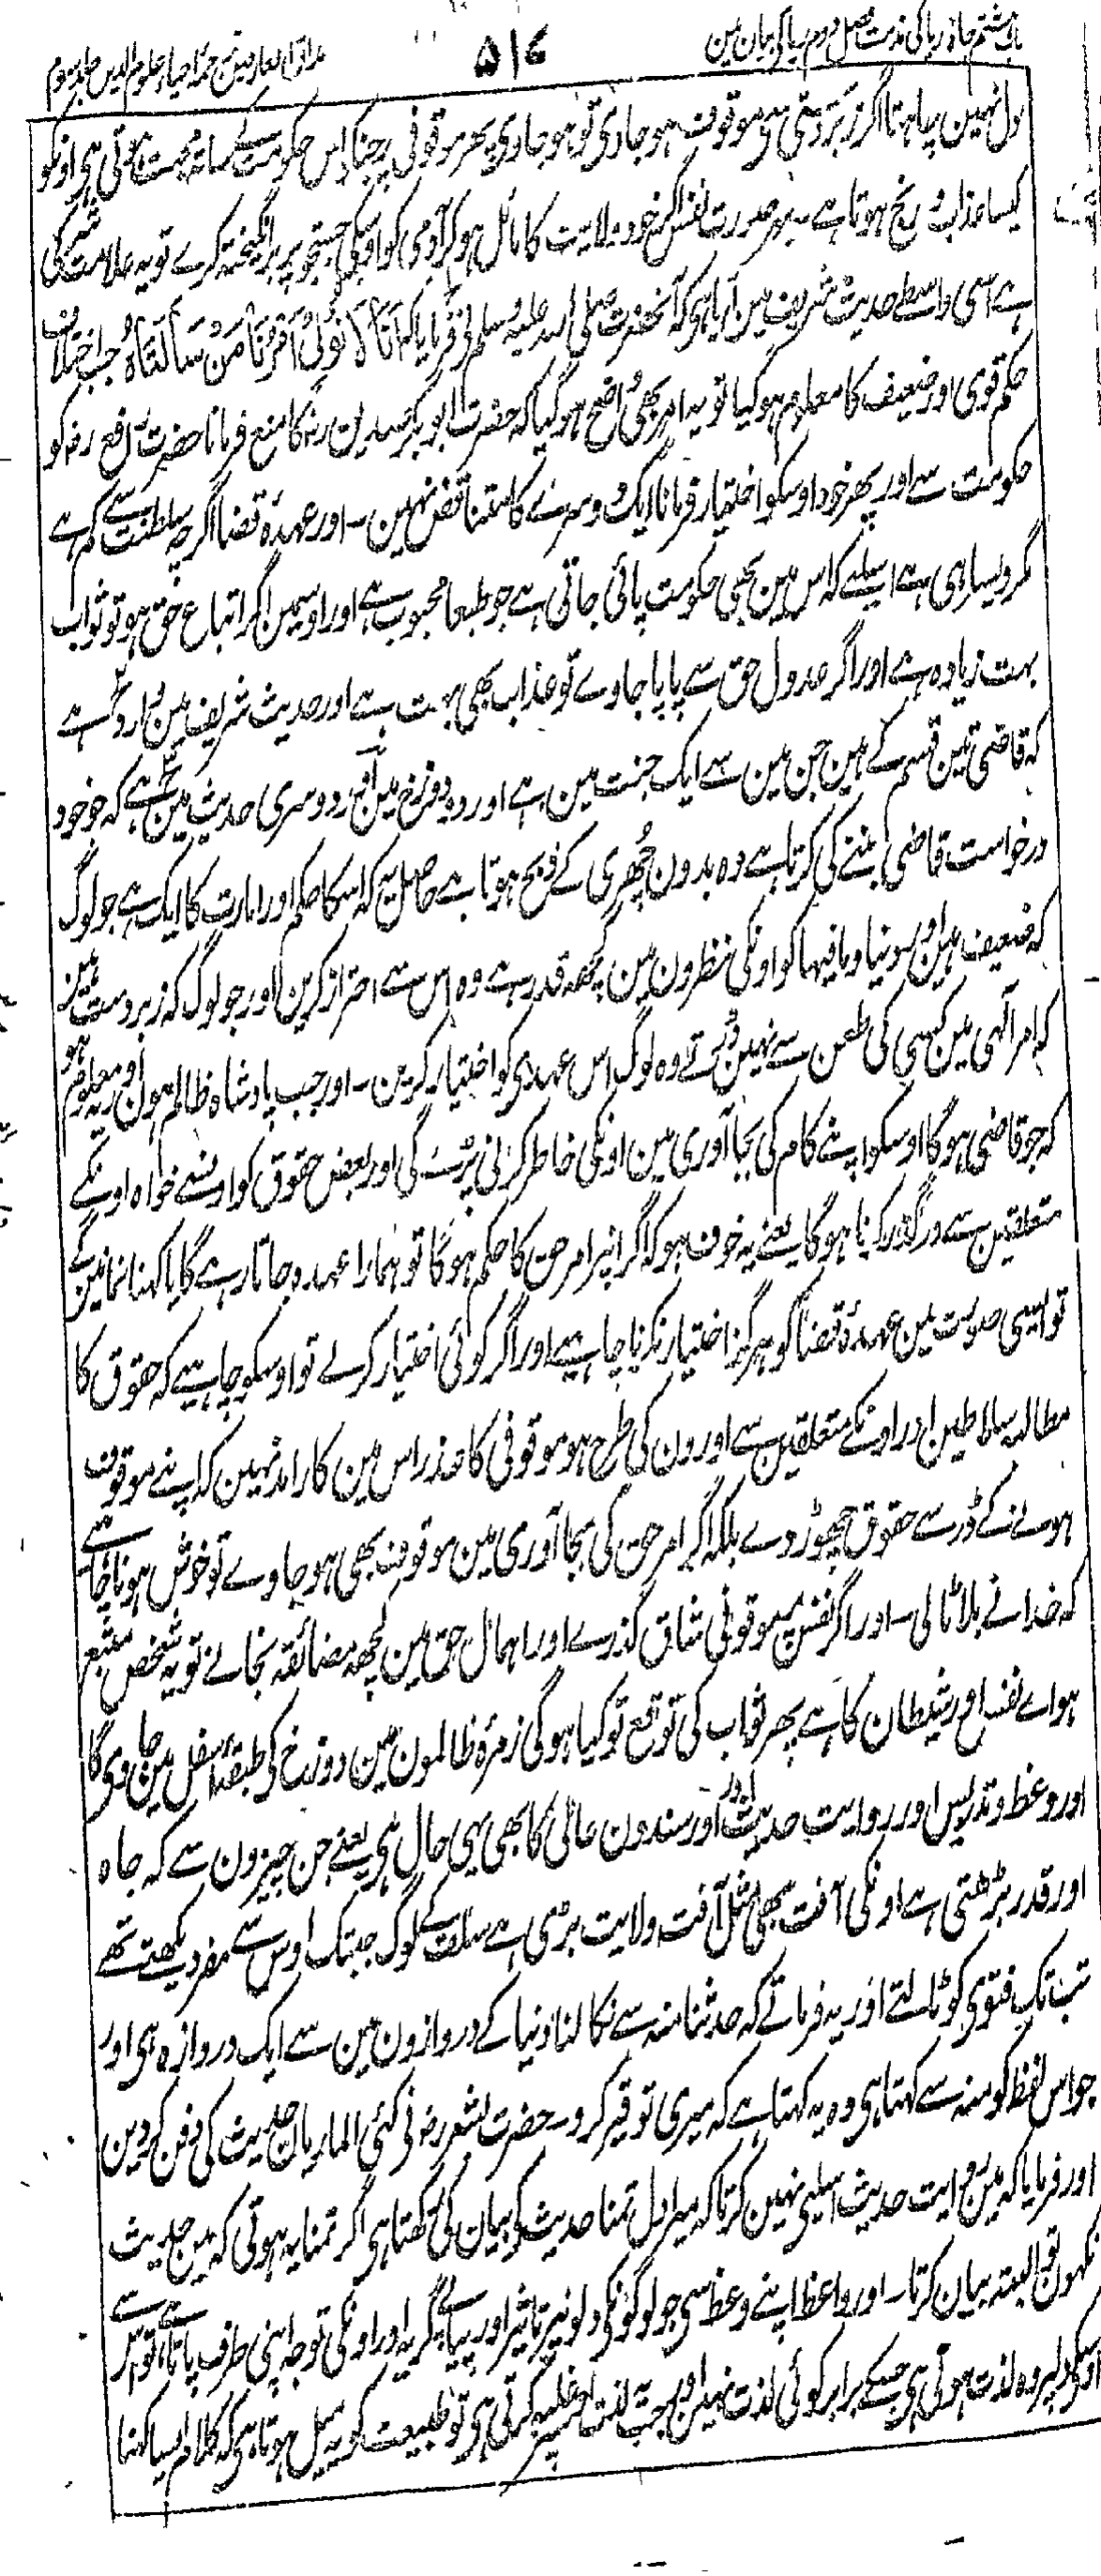 باب ہشتم جاہ و ریا کی مذمت فصل دوم ریا کے بیان مین
۵۱۷
مذاق العارفین ترجمہ احیاء علوم الدین جلد سوم
دل نہین چاہتا اگر زبردستی ہی موقوف ہو جاوی تو ہو جاوی پھر موقوفی پر جتنا اس حکومت کے ساتھ محبت ہوتی ہی اونکو
کیسا عذاب و رنج ہوتا ہے بہر صورت نفس اگر خود ولایت کا مائل ہو کر آدمی کو اوسکی جستجو پر برانگیختہ کرے تو یہ علامت شر کی
ہے اسی واسطے حدیث شریف مین آیا ہی کہ آنحضرت صلی اللہ علیہ وسلم نی فرمایا کہ اِنَّا لَا نُوَلِّیْ اَمْرَنَا مَنْ سَأَلَنَاہُ جب اختلاف
حکم قوی اور ضعیف کا معلوم ہو گیا تو یہ امر بھی واضح ہو گیا کہ حضرت ابوبکر صدیق رضہ کا منع فرمانا حضرت رافع رضہ کو
حکومت سے اور پھر خود اوسکو اختیار فرمانا ایک دوسرے کا متناقض نہین ۔ اور عہدہ قضا اگرچہ سلطنت سے کم ہے
مگر ویسا ہی ہے اسلیے کہ اس مین بھی حکومت پائی جاتی ہے جو طبعا محبوب ہے اور اوسمین اگر اتباع حق ہو تو ثواب
بہت زیادہ ہے اور اگر عدول حق سے پایا جاوے تو عذاب بھی بہت ہے اور حدیث شریف مین وارد ہے
کہ قاضی تین قسم کے ہین جن مین سے ایک جنت مین ہے اور دو دوزخ مین اور دوسری حدیث مین ہے کہ جو خود
درخواست قاضی بننے کی کرتا ہے وہ بدون چھری کے ذبح ہوتا ہے حاصل یہ کہ اسکا حکم اور امارت کا ایک ہے جو لوگ
کہ ضعیف ہین اور دنیا و مافیہا کو اونکی نظرون مین کچھ قدر ہے وہ اس سے احتراز کرین اور جو لوگ کہ زبردست ہین
کہ امر آلہی مین کسی کی طعن سے نہین ڈرتے وہ لوگ اس عہدی کو اختیار کرین ۔ اور جب بادشاہ ظالم ہون اور یہ معلوم ہو
کہ جو قاضی ہوگا اوسکو اپنے کام کی بجا آوری مین اونکی خاطر کرنی پڑے گی اور بعض حقوق کو اونسے خواہ اونکے
متعلقین سے درگذر کرنا ہوگا یعنے یہ خوف ہو کہ اگر انپر امر حق کا حکم ہوگا تو ہمارا عہدہ جاتا رہے گا یا کہنا نمانین گے
تو ایسی صورت مین عہدۂ قضا کو ہرگز اختیار نکرنا چاہیے اور اگر کوئی اختیار کرلے تو اوسکو چاہیے کہ حقوق کا
مطالبہ سلاطین اور اونکے متعلقین سے اورون کی طرح ہو موقوفی کا عذر اس مین کارآمد نہین کہ اپنے موقوف
ہونے کے ڈر سے حقوق چھوڑ دے بلکہ اگر امر حق کی بجا آوری مین موقوف بھی ہو جاوے تو خوش ہونا چاہیے
کہ خدا نے بلا ٹالی ۔ اور اگر نفس پر موقوفی شاق گذرے اور اہمال حق مین کچھ مضائقہ نجانے تو یہ شخص متبع
ہواے نفس اور شیطان کا ہے پھر ثواب کی توقع تو کیا ہوگی زمرۂ ظالمون مین دوزخ کی طبقۂ اسفل مین جاوی گا
اور وعظ و تدریس اور روایت حدیث اور سندون عالی کا بھی یہی حال ہی یعنے جن چیزون سے کہ جاہ
اور قدر بڑھتی ہے اونکی آفت بھی مثل آفت ولایت بڑی ہے سلف کے لوگ جبتک اوس سے مفر دیکھتے تھے
تب تک فتوی کو ٹالتے اور یہ فرماتے کہ حدثنا منہ سے نکالنا دنیا کے دروازون مین سے ایک دروازہ ہی اور
جو اس لفظ کو منہ سے کہتا ہی وہ یہ کہتا ہے کہ میری توقیر کرو ۔ حضرت بشر رضہ نی کئی الماریان حدیث کی دفن کردین
اور فرمایا کہ مین روایت حدیث اسلیی نہین کرتا کہ میرا دل تمنا حدیث کے بیان کی رکھتا ہی اگر تمنا یہ ہوتی کہ مین حدیث
نکہون تو البتہ بیان کرتا ۔ اور واعظ اپنے وعظ سی جو لوگونکی دلونپر تاثیر اور گریہ اور اونکی توجہ اپنی طرف پاتا ہے تو اس سے
اوسکو دلپر وہ لذت ہوتی ہی جسکے برابر کوئی لذت نہین اور جب یہ لذت غلبہ کرتی ہی تو طبیعت کو یہ میل ہوتا ہی کہ کلام ایسا کہنا